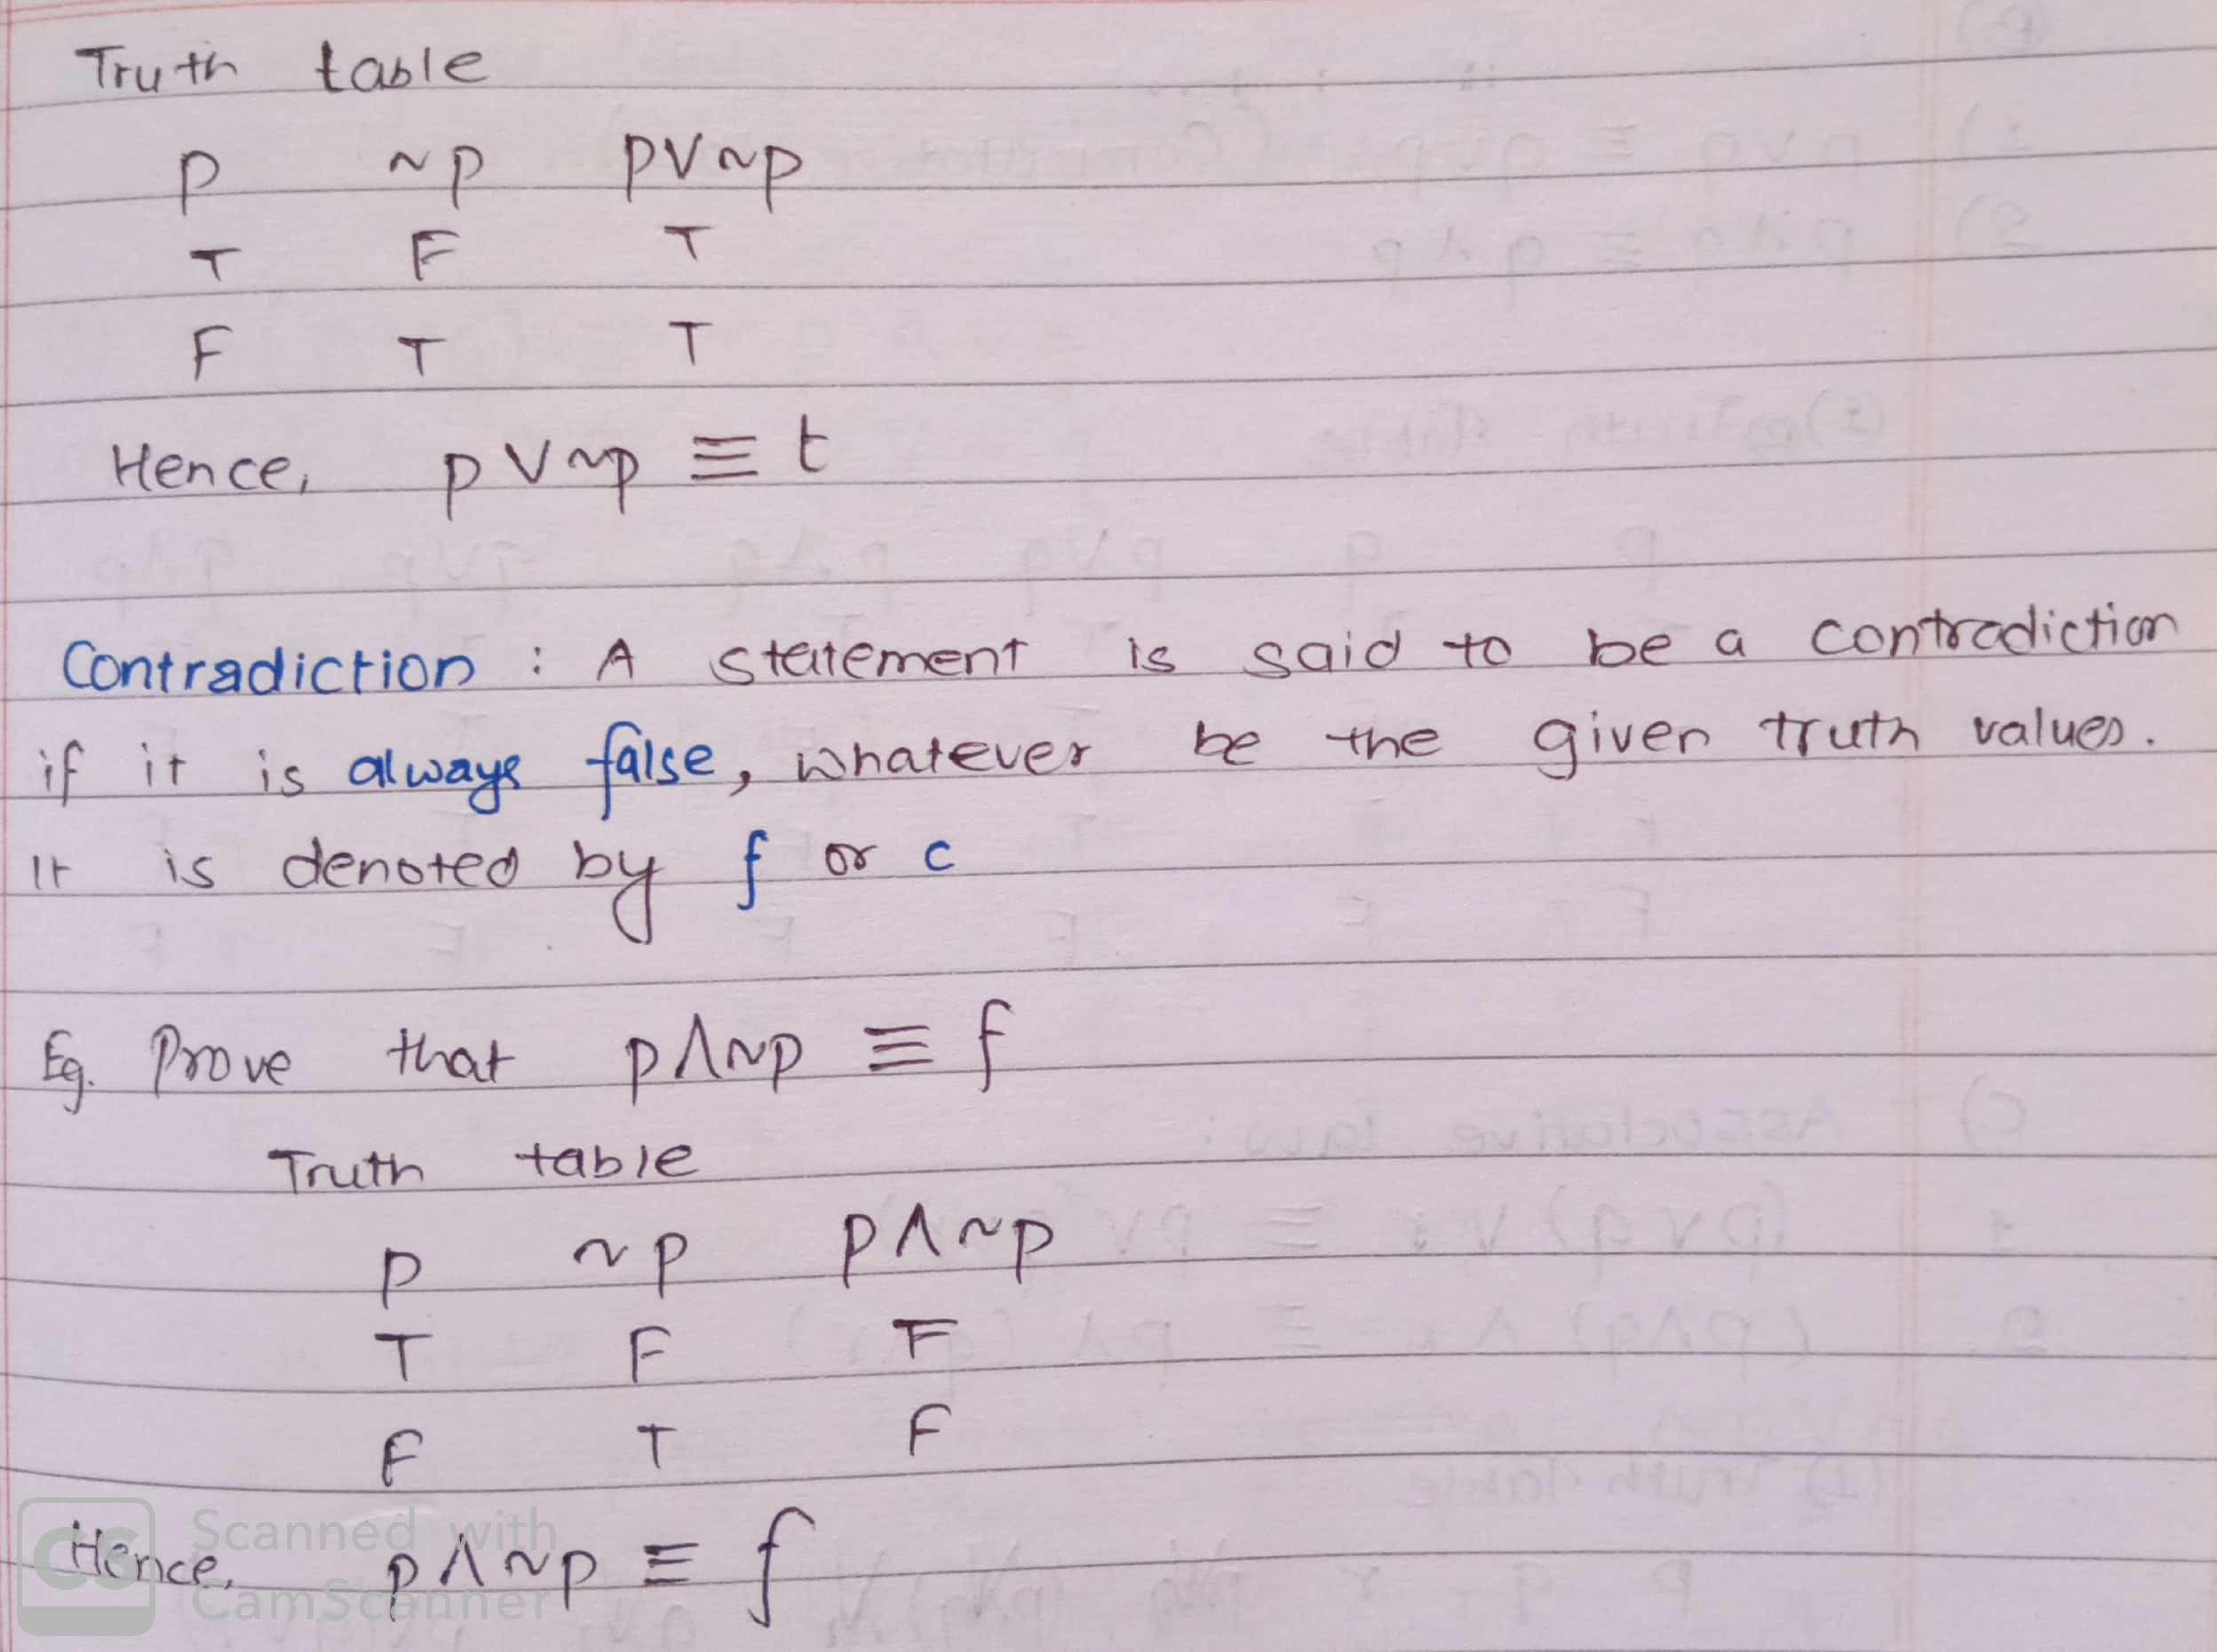 Truth table
p ~p p∨~p
T F T
F T T
Hence, p∨~p ≡ t
Contradiction : A statement is said to be a contradiction
if it is always false, whatever be the given truth values.
It is denoted by f or c
Eg. Prove that p∧~p ≡ f
Truth table
p ~p p∧~p
T F F
F T F
Hence, p∧~p ≡ f
CS Scanned with
CamScanner